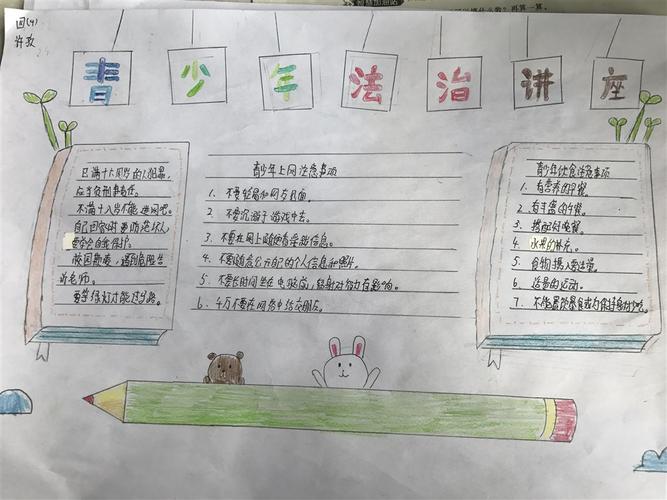 四(4)
许诺
青少年法治讲座
已满十六周岁的人犯罪,
应当负刑事责任。
不满十八岁不能进网吧。
自己回家时要防范坏人
要学会自我保护。
校园欺凌,遇到危险告
诉老师。
要等绿灯才能过马路。
青少年上网注意事项
1、不要轻易和网友见面。
2、不要沉溺于游戏中去。
3、不要在网上随便看受骗信息。
4、不要随意公开自己的个人信息和照片。
5、不要长时间坐在电脑前,辐射对智力有影响。
6、千万不要在网吧中结交朋友。
青少年饮食注意事项
1、有营养的早餐
2、有丰富的午餐
3、搭配好晚餐。
4、水果的补充。
5、食物摄入要适量。
6、适量的运动。
7、不能暴饮暴食